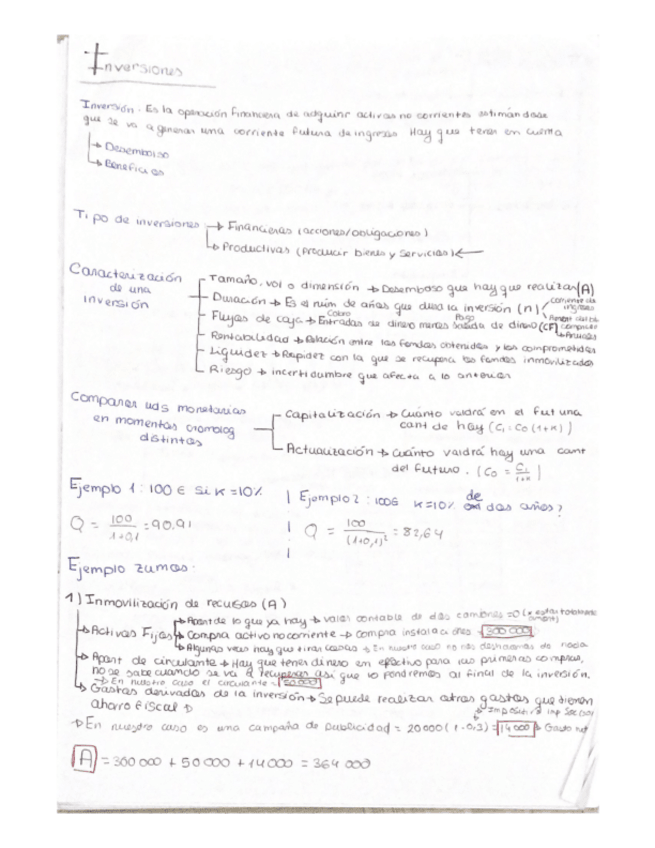 Inversiones
Inversión. Es la operación financiera de adquirir activos no corrientes estimándose
que se va a generar una corriente futura de ingresos Hay que tener en cuenta
↳ Desembolso
↳ Beneficios
Tipo de inversiones → Financieras (acciones/obligaciones)
↳ Productivas (Producir bienes y servicios) ←
Caracterización de una inversión
Tamaño, vol o dimensión → Desembolso que hay que realizar (A)
Duración → Es el núm de años que dura la inversión (n)
Flujos de caja → Entradas de dinero menos salida de dinero (CF)
Cobro Pago
Rentabilidad → Relación entre los fondos obtenidos y los comprometidos
Liquidez → Rapidez con la que se recupera los fondos inmovilizados
Riesgo → incertidumbre que afecta a lo anterior
Comparar uds monetarias
en momentos cronolog
distintos
Capitalización → Cuánto valdrá en el fut una
cant de hoy (C₁ = C₀ (1+k))
Actualización → Cuánto valdrá hoy una cant
del futuro. (C₀ = C₁/1+k)
Ejemplo 1: 100 € si K = 10%
Q = 100/1+0,1 = 90.91
Ejemplo 2: 100€ K=10% de dos años?
Q = 100/(1+0,1)² = 82,64
Ejemplo zumos.
1) Inmovilización de recursos (A)
→ Activos Fijos
→ Apart de lo que ya hay → valor contable de dos camiones = 0
→ Compra activo no corriente → Compra instalaciones = 300 000
→ Algunas veces hay que tirar cosas → En nuestro caso no nos deshacemos de nada
→ Apart de circulante → Hay que tener dinero en efectivo para las primeras compras,
no se sabe cuando se va a recuperar así que lo pondremos al final de la inversión.
→ En nuestro caso el circulante = 50 000
→ Gastos derivados de la inversión → Se puede realizar otros gastos que tienen
ahorro fiscal
Impositivo imp Socied
→ En nuestro caso es una campaña de publicidad = 20000 (1-0,3) = 14 000 → Gasto net
A = 300 000 + 50 000 + 14 000 = 364 000